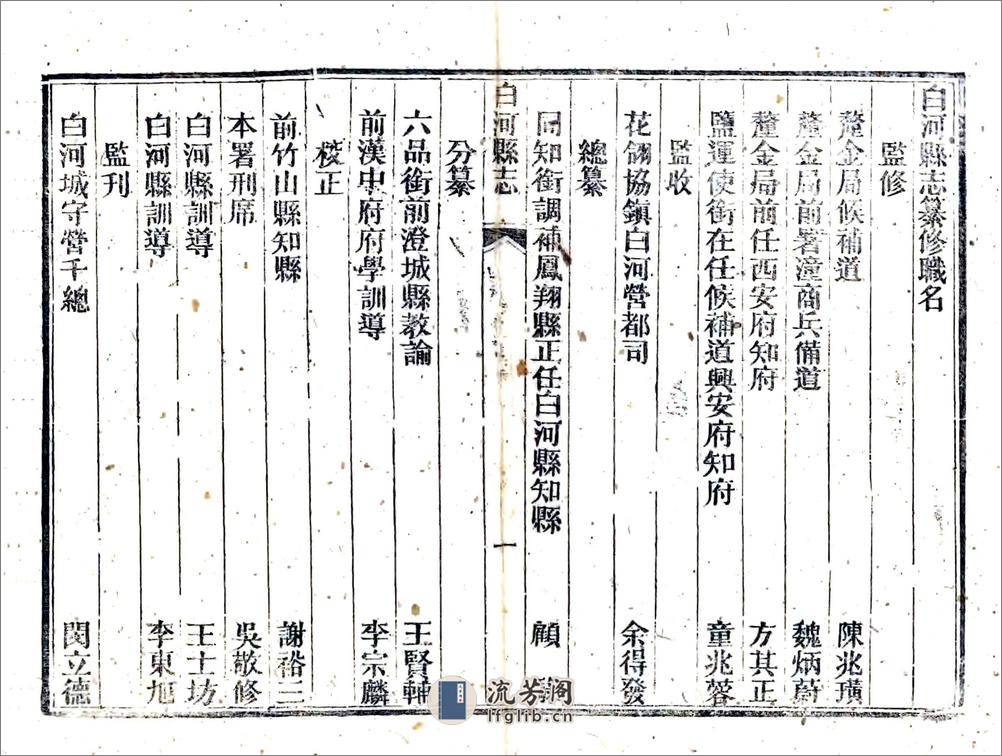 白河縣志纂修職名
監修
釐金局候補道 陳兆璜
釐金局前署潼商兵備道 魏炳蔚
釐金局前任西安府知府 方其正
鹽運使銜在任候補道興安府知府 童兆蓉
監收
花翎協鎮白河營都司 余得發
總纂
同知銜調補鳳翔縣正任白河縣知縣 顧
白河縣志
一
分纂
六品銜前澄城縣教諭 王賢輔
前漢中府府學訓導 李宗麟
校正
前竹山縣知縣 謝裕三
本署刑席 吳敬修
白河縣訓導 王士坊
白河縣訓導 李東旭
監刊
白河城守營千總 閔立德
流芳閣
lfglib.cn